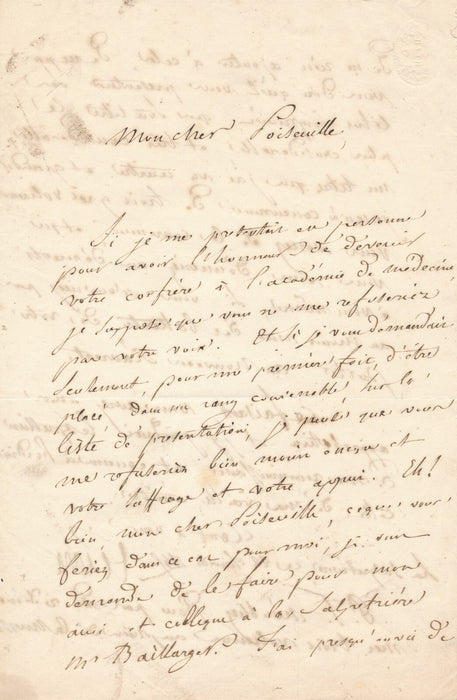 Mon cher Poiseuille,
Si je me présentais en personne
pour avoir l'honneur de devenir
votre confrère à l'académie de médecine,
je suppose que vous ne me refuseriez
pas votre voix. Et si je vous demandais
seulement, pour une première fois, d'être
placé dans un rang convenable, sur la
liste de présentation, je pense que vous
me refuseriez bien moins encore et
votre suffrage et votre appui. Eh!
bien mon cher Poiseuille, ce que vous
feriez dans ce cas pour moi, je vous
demande de le faire pour mon
ami et collègue à la Salpétrière
Mr Baillarger. J'ai presqu'envie de